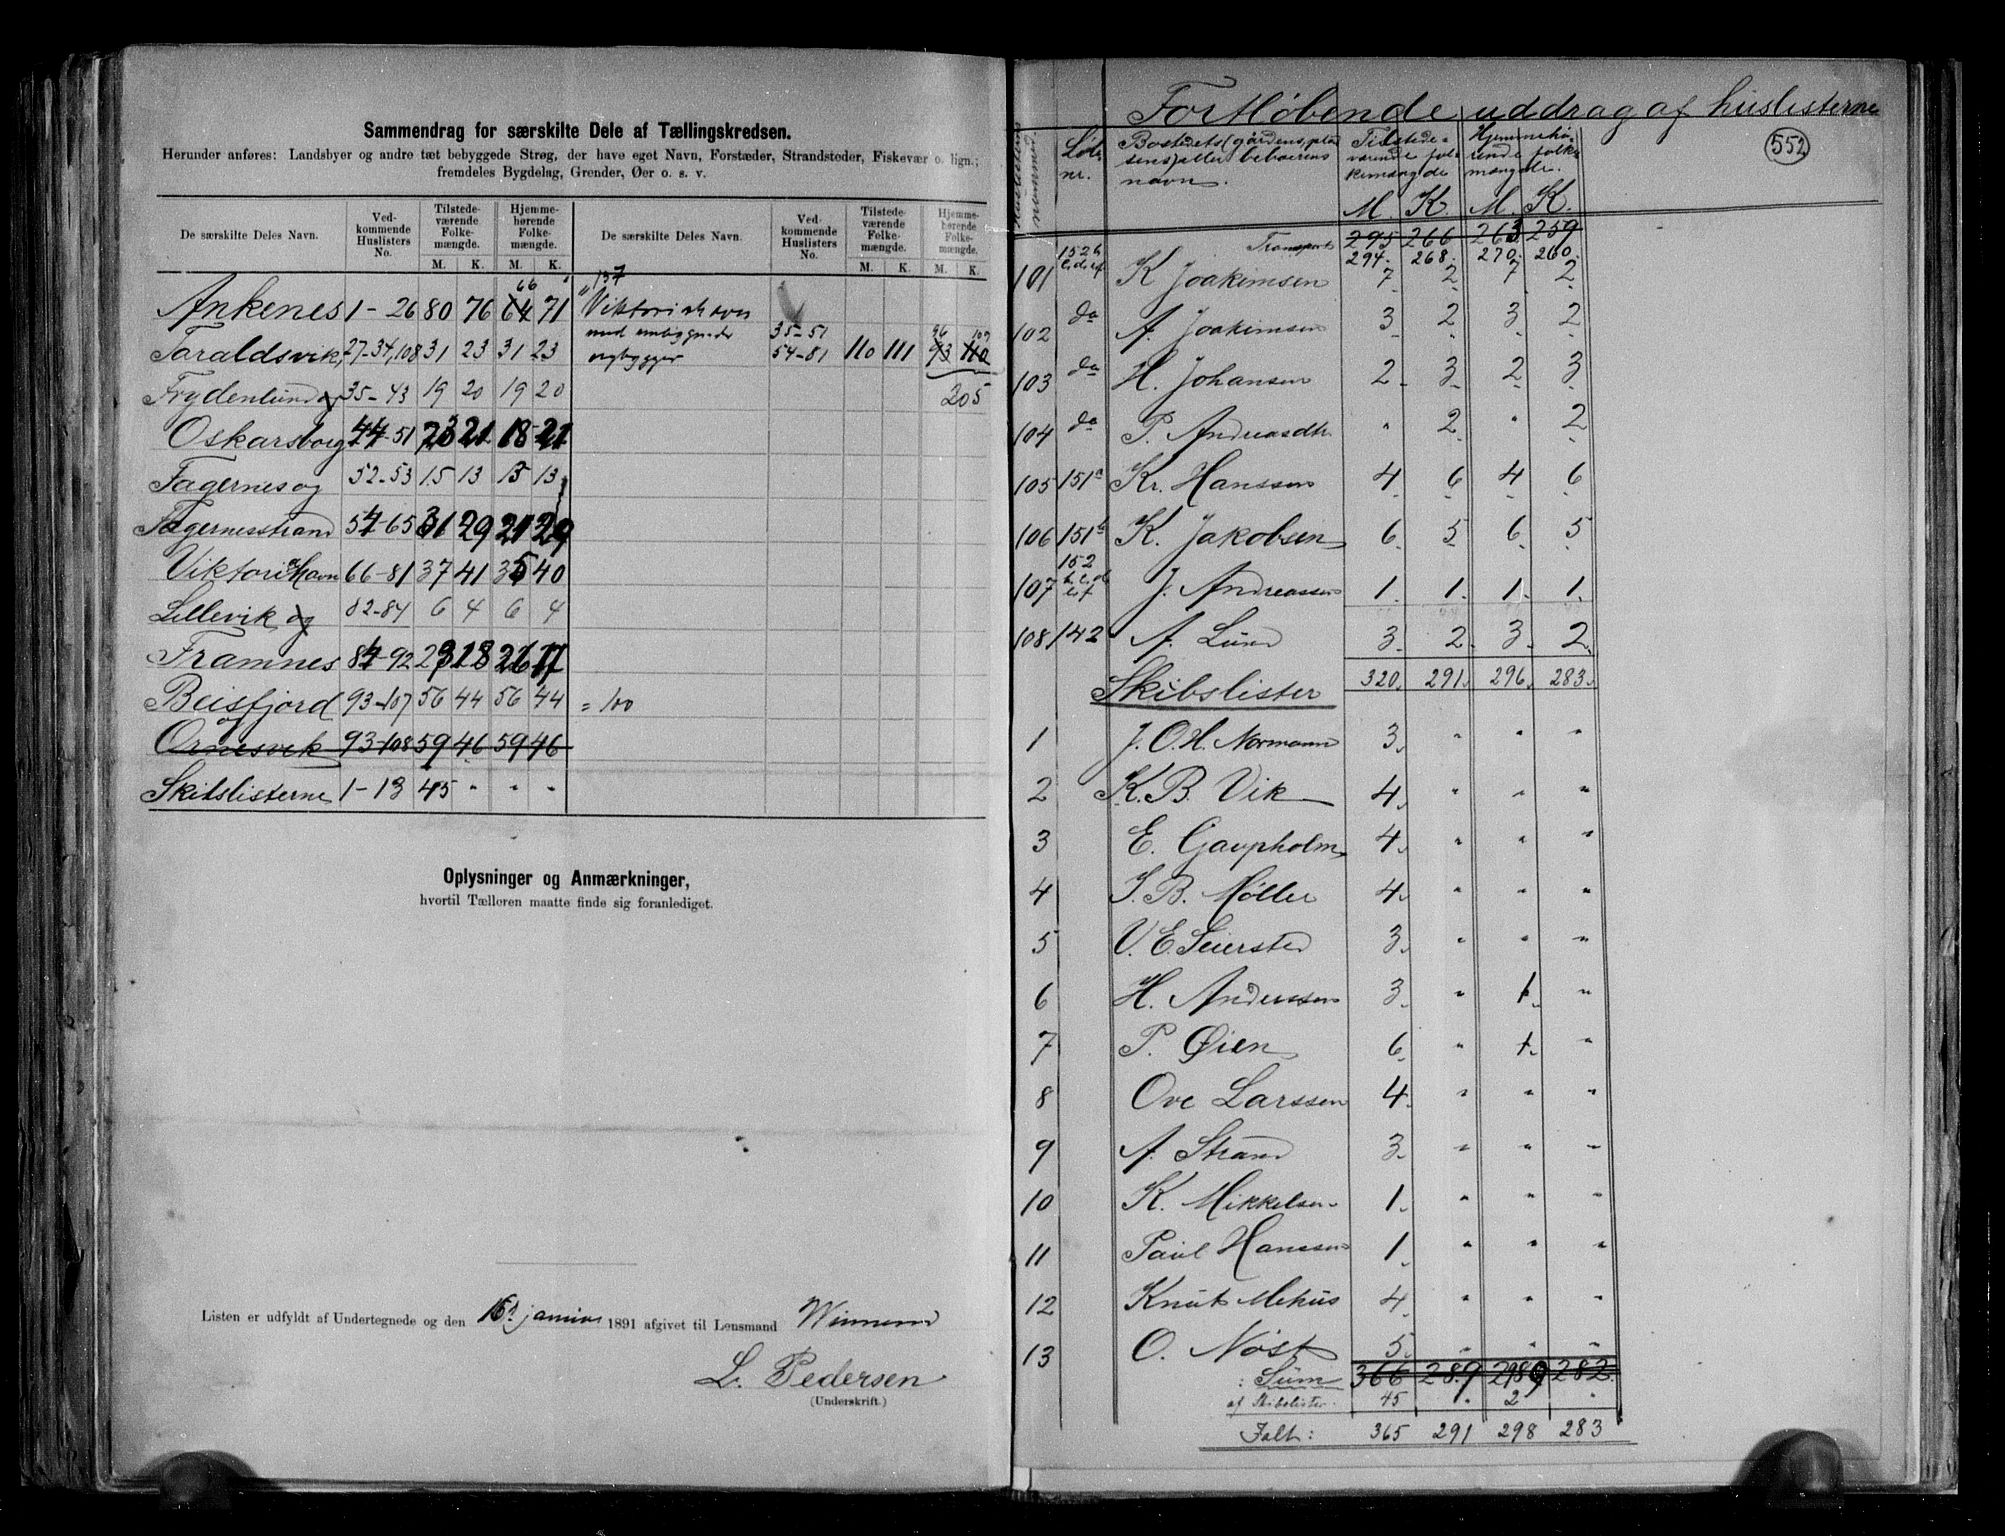 Sammendrag for særskilte Dele af Tællingskredsen.
Herunder anføres: Landsbyer og andre tæt bebyggede Strøg, der have eget Navn, Forstæder, Strandsteder, Fiskevær o. lign.;
fremdeles Bygdelag, Grender, Øer o. s. v.
De særskilte Deles Navn. Ved-kommende Huslisters No. Tilstede-værende Folke-mængde. Hjemme-hørende Folke-mængde. De særskilte Deles Navn. Ved-kommende Huslisters No. Tilstede-værende Folke-mængde. Hjemme-hørende Folke-mængde.
M. K. M. K. M. K. M. K.
66 " 137
Ankenes 1-26 80 76 64 71 Viktoriahavn
med omliggende 35-51 96 109
Taraldsvik, 27-34, 108 31 23 31 23 54-81 110 111 93 110
Frydenlund og 35-43 19 20 19 20 205
Oskarsborg 44-51 23 21 18 21
Fagernes og 52-53 15 13 15 13
Fagernesstrand 54-65 31 29 21 29
Viktoriahavn 66-81 37 41 35 40
Lillevik og 82-84 6 4 6 4
Framnes 84-92 23 18 26 17
Beisfjord 93-107 56 44 56 44 = 100
og
Ornesvik 93-108 59 46 59 46
Skibslisterne 1-13 45 " " "
Oplysninger og Anmærkninger,
hvortil Tælleren maatte finde sig foranlediget.
Listen er udfyldt af Undertegnede og den 16de januar 1891 afgivet til Lensmand
L. Pedersen
(Underskrift.)
Fortløbende uddrag af huslisterne
552
Huslistens nummer. Løb. nr. Bostedets (gårdens, pladsens) eller beboerens navn. Tilstedeværende folkemængde Hjemmehørende folkemængde.
M. K. M. K.
Transport 295 266 263 259
294. 268. 270. 260.
101 K Joakimsen 7 2 7 2
102 do A. Joakimsen 3 2 3 2
103 do H. Johansen 2 3 2 3
104 do P. Andreasdtr " 2 " 2
105 151a Kr. Hanssen 4 6 4 6
106 151b K. Jakobsen 6 5 6 5
107 152 J. Andreassen 1. 1. 1. 1.
108 142 A. Lund 3 2 3 2
Skibslister 320. 291. 296. 283.
1 J. O. H. Normann 3. " " "
2 K. B. Vik 4. " " "
3 E. Gaupholm 4. " " "
4 J. B. Møller 4. " " "
5 V. E. Seiersted 3. " " "
6 H. Anderssen 3. " 1. "
7 P. Øien 6. " 1. "
8 Ove Larssen 4. " " "
9 A. Strand 3. " " "
10 K. Mikkelsen 1. " " "
11 Paul Hanssen 1. " " "
12 Knut Mehus 4. " " "
13 O. Nøst 5. " " "
Sum 366 289 298 282
af Skibslister. 45 " 2 "
Ialt: 365 291 298 283